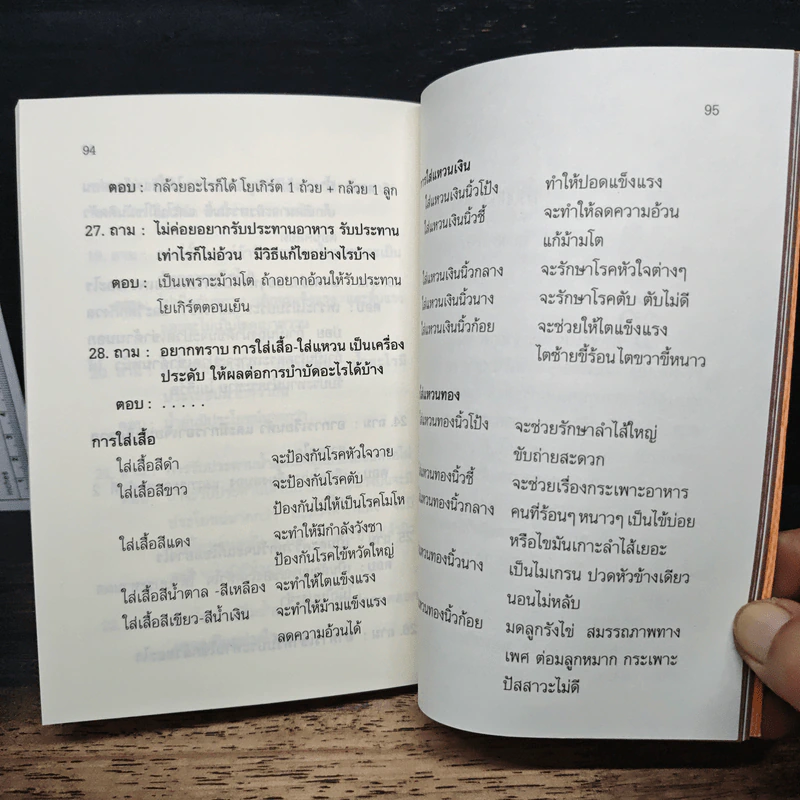 94
ตอบ : กล้วยอะไรก็ได้ โยเกิร์ต 1 ถ้วย + กล้วย 1 ลูก
27. ถาม : ไม่ค่อยอยากรับประทานอาหาร รับประทาน
เท่าไรก็ไม่อ้วน มีวิธีแก้ไขอย่างไรบ้าง
ตอบ : เป็นเพราะม้ามโต ถ้าอยากอ้วนให้รับประทาน
โยเกิร์ตตอนเย็น
28. ถาม : อยากทราบ การใส่เสื้อ-ใส่แหวน เป็นเครื่อง
ประดับ ให้ผลต่อการบำบัดอะไรได้บ้าง
ตอบ : . . . . .
การใส่เสื้อ
ใส่เสื้อสีดำ จะป้องกันโรคหัวใจวาย
ใส่เสื้อสีขาว จะป้องกันโรคตับ
ป้องกันไม่ให้เป็นโรคโมโห
ใส่เสื้อสีแดง จะทำให้มีกำลังวังชา
ป้องกันโรคไข้หวัดใหญ่
ใส่เสื้อสีน้ำตาล -สีเหลือง จะทำให้ไตแข็งแรง
ใส่เสื้อสีเขียว-สีน้ำเงิน จะทำให้ม้ามแข็งแรง
ลดความอ้วนได้
95
การใส่แหวนเงิน
ใส่แหวนเงินนิ้วโป้ง ทำให้ปอดแข็งแรง
ใส่แหวนเงินนิ้วชี้ จะทำให้ลดความอ้วน
แก้ม้ามโต
ใส่แหวนเงินนิ้วกลาง จะรักษาโรคหัวใจต่างๆ
ใส่แหวนเงินนิ้วนาง จะรักษาโรคตับ ตับไม่ดี
ใส่แหวนเงินนิ้วก้อย จะช่วยให้ไตแข็งแรง
ไตซ้ายขี้ร้อน ไตขวาขี้หนาว
ใส่แหวนทอง
แหวนทองนิ้วโป้ง จะช่วยรักษาลำไส้ใหญ่
ขับถ่ายสะดวก
แหวนทองนิ้วชี้ จะช่วยเรื่องกระเพาะอาหาร
แหวนทองนิ้วกลาง คนที่ร้อนๆ หนาวๆ เป็นไข้บ่อย
หรือไขมันเกาะลำไส้เยอะ
แหวนทองนิ้วนาง เป็นไมเกรน ปวดหัวข้างเดียว
นอนไม่หลับ
แหวนทองนิ้วก้อย มดลูกรังไข่ สมรรถภาพทาง
เพศ ต่อมลูกหมาก กระเพาะ
ปัสสาวะไม่ดี